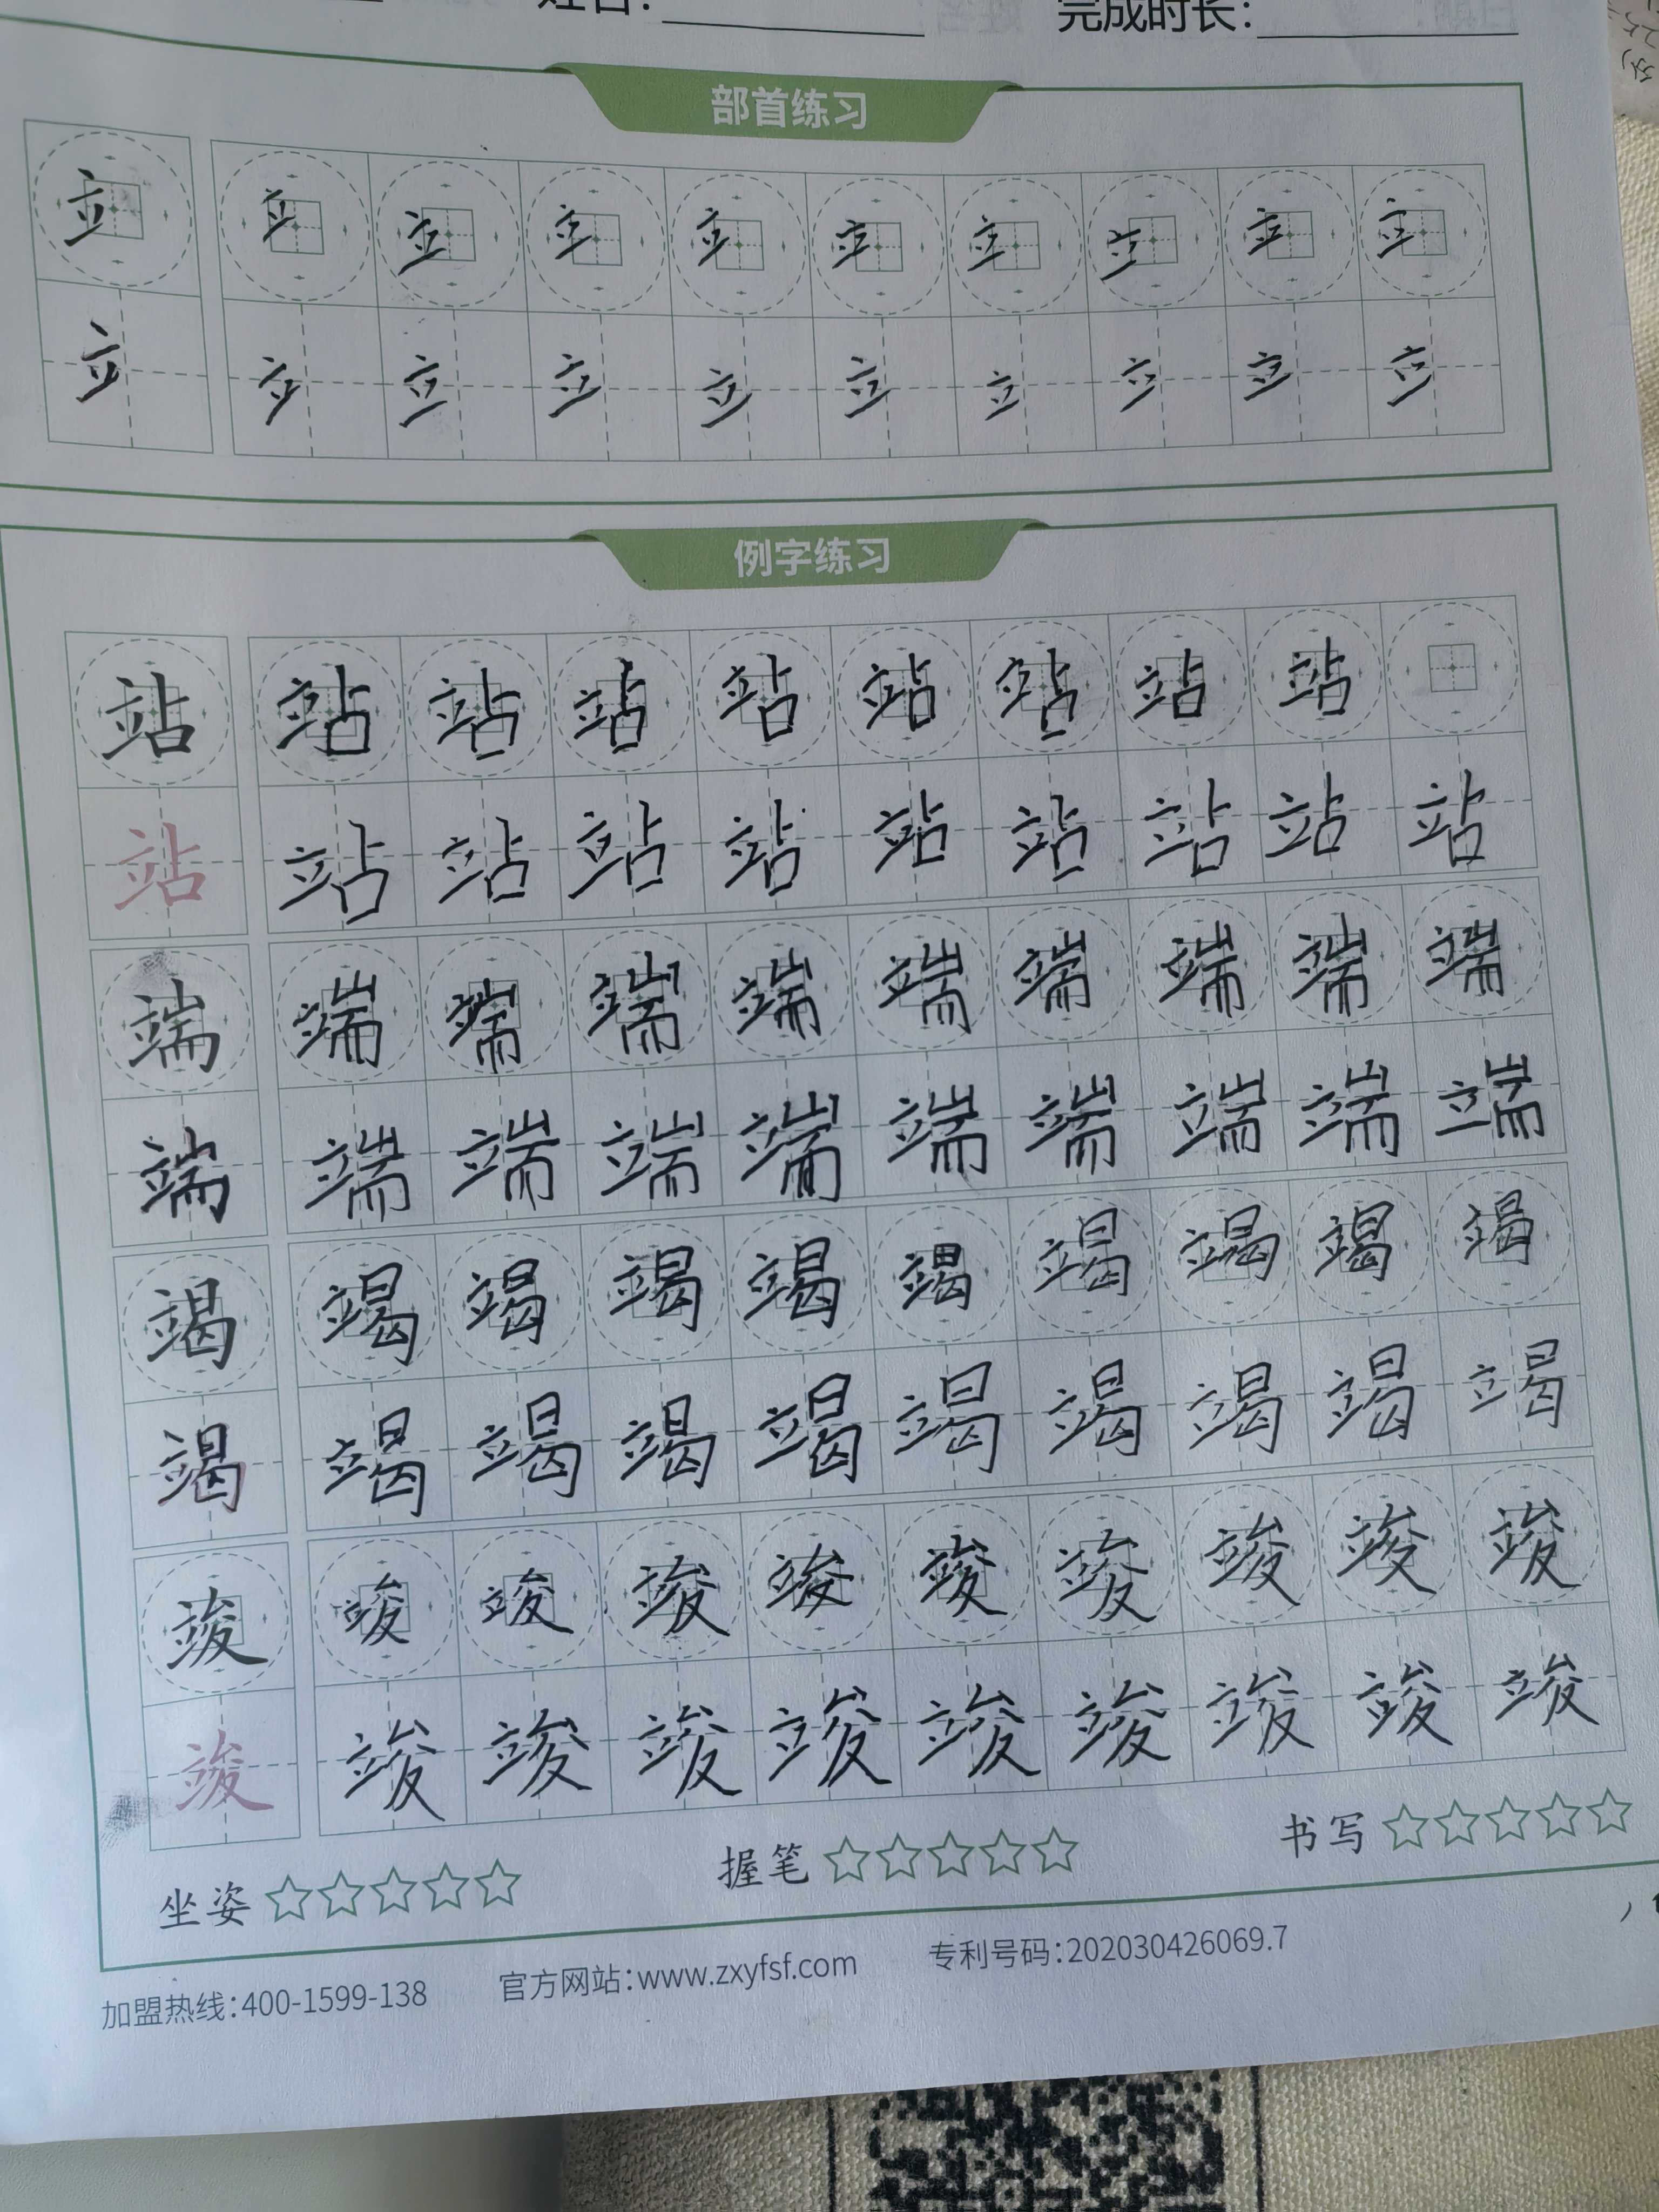 姓名: 完成时长:
部首练习
立 立 立 立 立 立 立 立 立 立
立 立 立 立 立 立 立 立 立 立
例字练习
站 站 站 站 站 站 站 站 站
站 站 站 站 站 站 站 站 站 站
端 端 端 端 端 端 端 端 端 端
端 端 端 端 端 端 端 端 端 端
竭 竭 竭 竭 竭 竭 竭 竭 竭 竭
竭 竭 竭 竭 竭 竭 竭 竭 竭 竭
竣 竣 竣 竣 竣 竣 竣 竣 竣 竣
竣 竣 竣 竣 竣 竣 竣 竣 竣 竣
坐姿 ☆☆☆☆☆ 握笔 ☆☆☆☆☆ 书写 ☆☆☆☆☆
加盟热线:400-1599-138 官方网站:www.zxyfsf.com 专利号码:202030426069.7